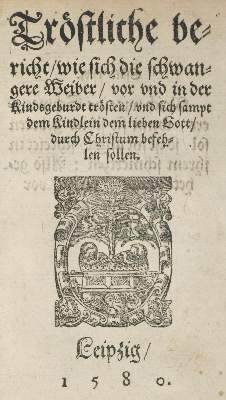 Tröstliche be-
richt/wie sich die schwan-
gere Weiber/ vor vnd in der
Kindsgeburdt trösten/vnd sich sampt
dem Kindlein dem lieben Gott/
durch Christum befeh-
len sollen.
Leipzig/
1580.